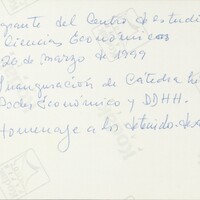 del Centro de estudi
Ciencias Económicas
20 de marzo de 1999
Inauguración de Cátedra
Poder Económico y DDHH.
Homenaje a los detenidos